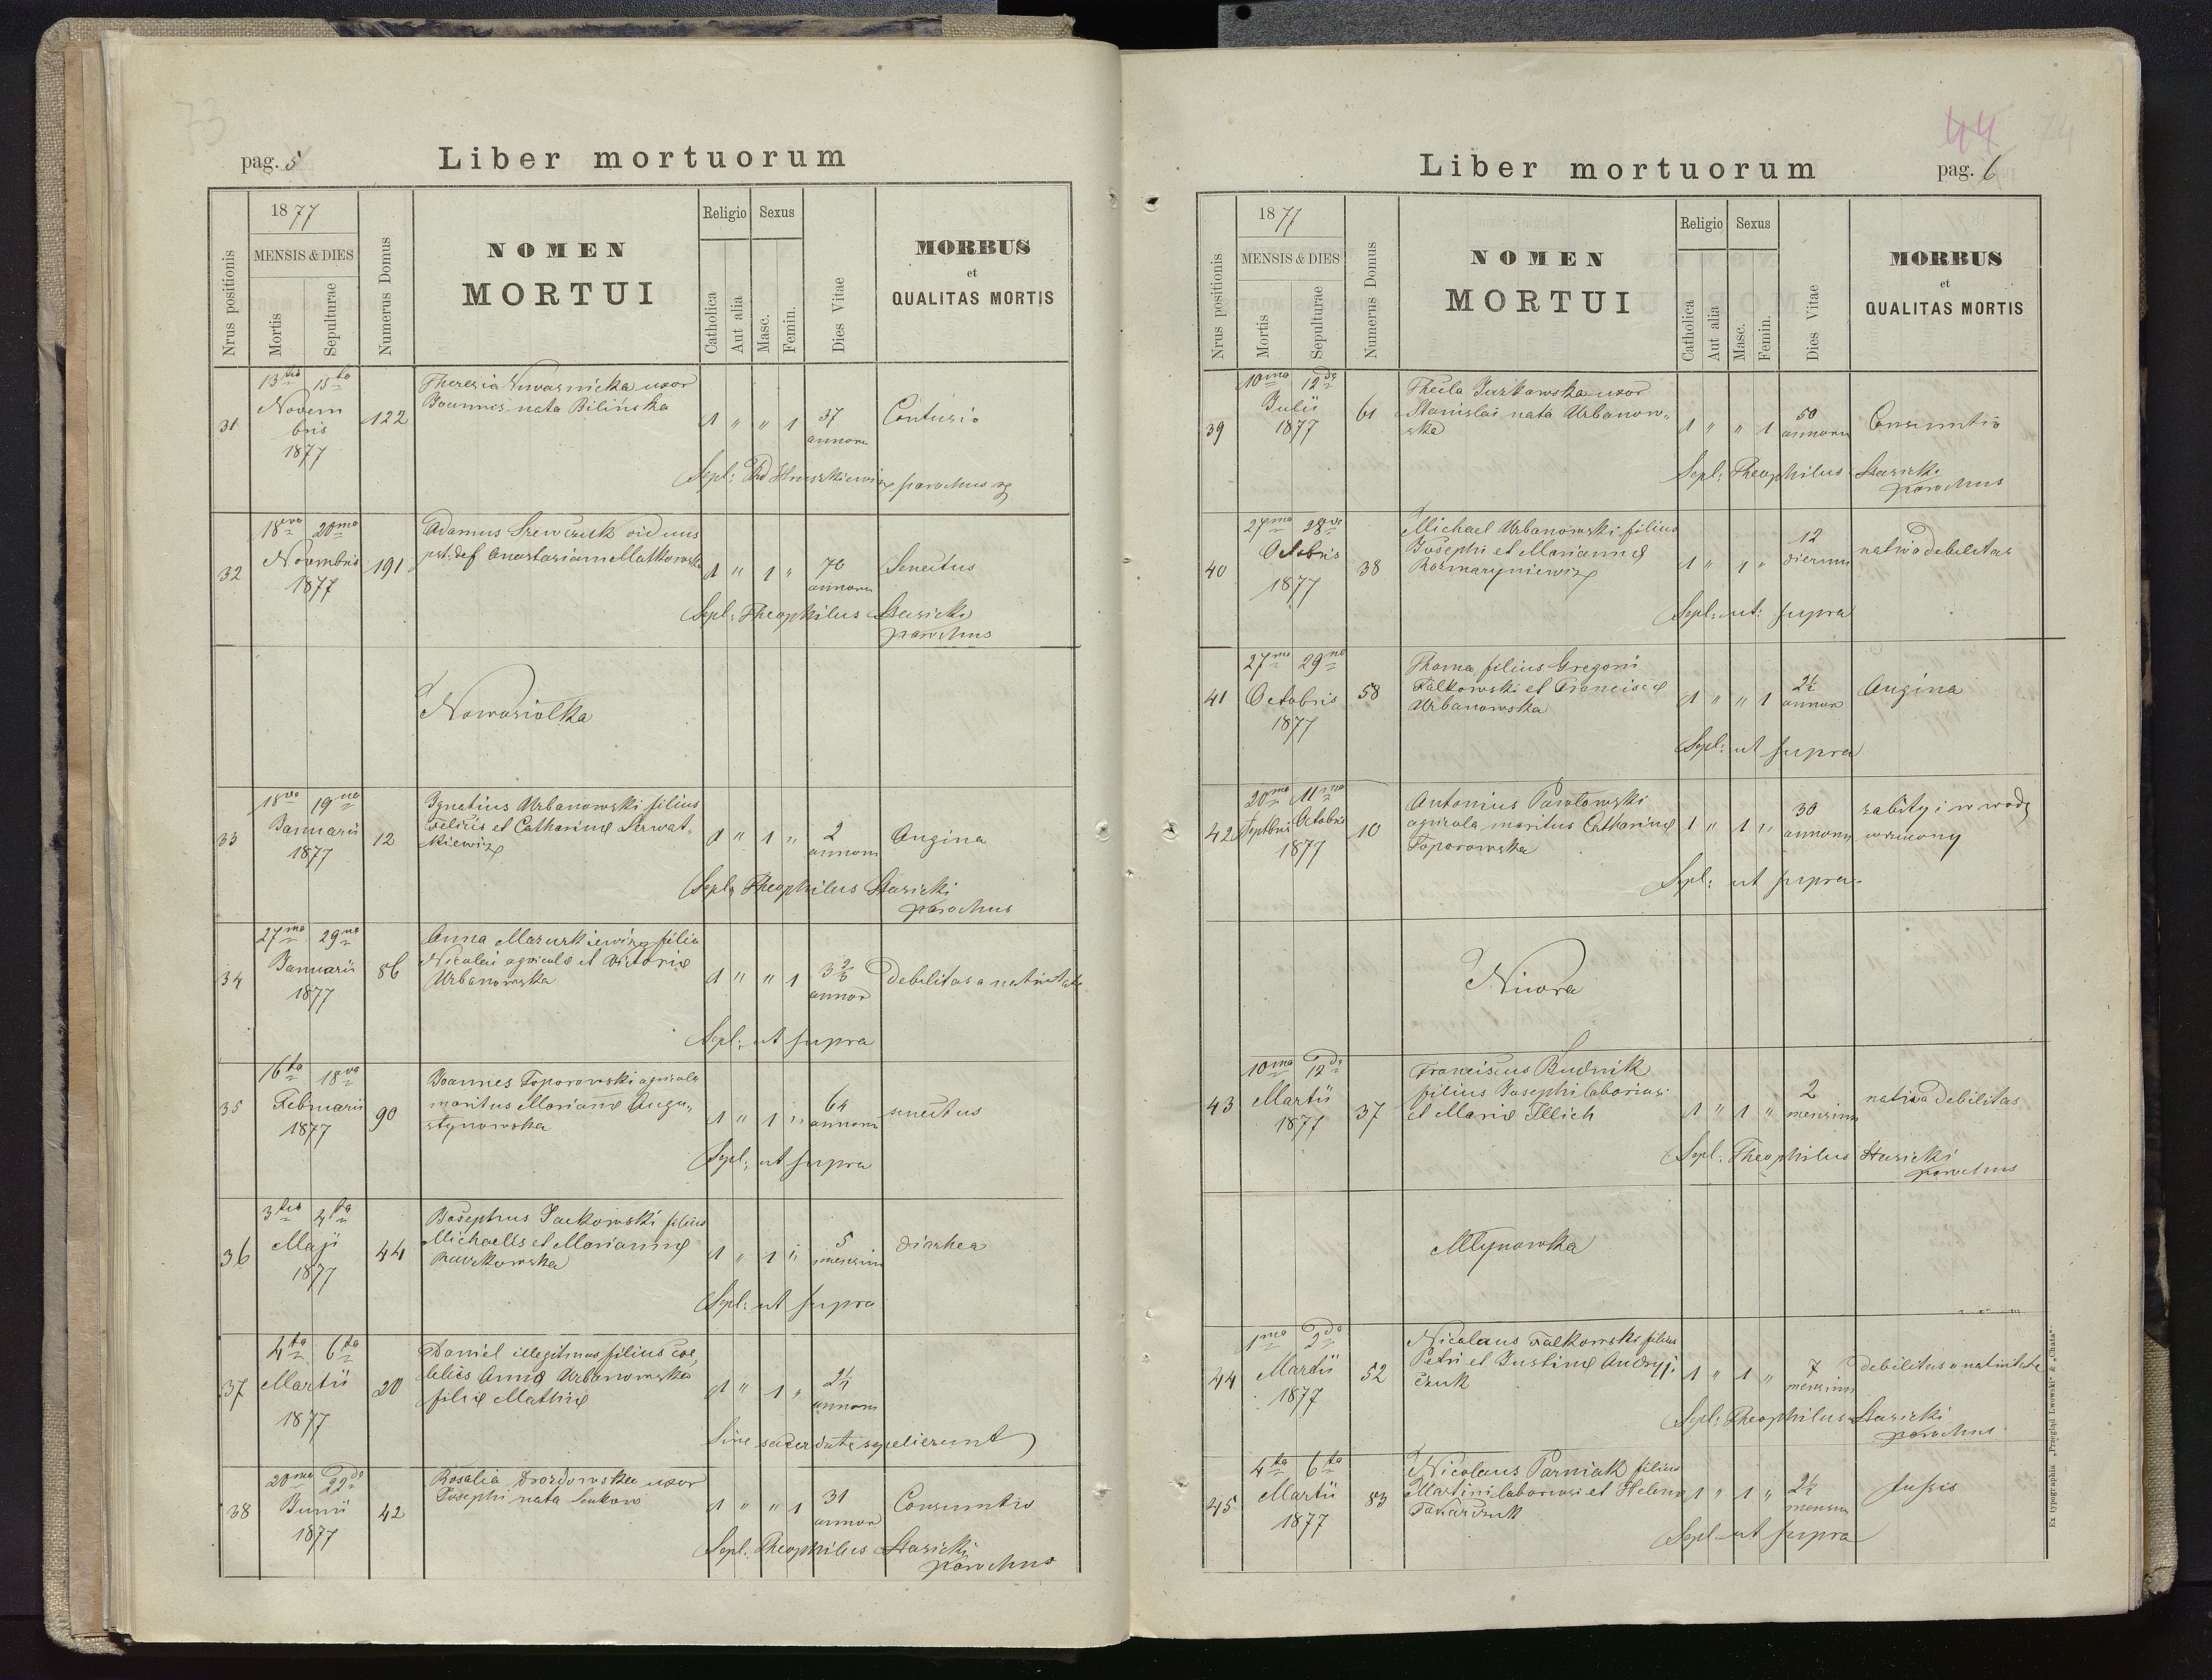 73
pag. 5
Liber mortuorum
Nrus positionis
1877
MENSIS & DIES
Mortis
Sepulturae
Numerus Domus
NOMEN
MORTUI
Religio
Catholica
Aut alia
Sexus
Masc.
Femin.
Dies Vitae
MORBUS
et
QUALITAS MORTIS
31
13tia 15ta
Novem
bris
1877
122
Theresia uxor
Joannis nata Bilińska
1 " " 1
37
annoru
Contusio
Sepl: parochus
32
18va 20ma
Novmbris
1877
191
Adamus Szewczuk viduus
pst: def Anastasiam Matkowska
1 " 1 "
70
annoru
Senectus
Sepl: Theophilus Stasicki
parochus
Nowosiolka
33
18va 19na
Januarii
1877
12
Ignatius Urbanowski filius
Felicis et Catharinæ Serwat„
kiewicz
1 " 1 "
2
annoru
Angina
Sepl: Theophilus Stasicki
parochus
34
27ma 29na
Januarii
1877
86
Anna Mazurkiewicz filia
Nicolai agricolæ et Victoriæ
Urbanowska
1 " " 1
3 2/3
annor
Debilitas a nativitate
Sepl: ut supra
35
16ta 18va
Februarii
1877
90
Joannes Toporowski agricola
maritus Mariannæ Augu„
stynowska
1 " 1 "
64
annoru
senectus
Sepl: ut supra
36
3tia 4ta
Maji
1877
44
Josephus filius
Michaelis et Mariannæ
Paszkowska
1 " 1 "
5
mensium
diarhea
Sepl: ut supra
37
4ta 6ta
Martii
1877
20
Daniel illegitimus filius cœ
libis Annæ Urbanowska
filiæ Mathiæ
1 " 1 "
2½
annoru
Sine sacerdote sepelierunt
38
20ma 22da
Junii
1877
42
Rosalia Drozdowska uxor
Josephi nata Senkow
1 " " 1
31
annor
Consumtio
Sepl: Theophilus Stasicki
parochus
44 74
Liber mortuorum
pag. 6
Nrus positionis
1877
MENSIS & DIES
Mortis
Sepulturae
Numerus Domus
NOMEN
MORTUI
Religio
Catholica
Aut alia
Sexus
Masc.
Femin.
Dies Vitae
MORBUS
et
QUALITAS MORTIS
39
10ma 12da
Julii
1877
61
Thecla Juzkowska uxor
Stanislai nata Urbanow„
ska
1 " " 1
50
annoru
Consumtio
Sepl: Theophilus Stasicki
parochus
40
27ma 28va
Octobris
1877
38
Michael Urbanowski filius
Josephi et Mariannæ
Rozmaryniewicz
1 " 1 "
12
dierum
nativa debilitas
Sepl: ut: supra
41
27ma 29na
Octobris
1877
58
Thoma filius Gregorii
Falkowski et Franciscæ
Urbanowska
1 " " 1
2½
annor
Angina
Sepl: ut supra
42
20ma 11ma
Septbris Octobris
1877
10
Antonius Pawlowski
agricola maritus Catharinæ
Toporowska
1 " 1 "
30
annoru
zabity i w wodę
wrzucony
Sepl: ut supra
Niwra
43
10ma 12da
Martii
1877
37
Franciscus Budnik
filius Josephi laboriosi
et Mariæ Illich
1 " 1 "
2
mensium
nativa debilitas
Sepl: Theophilus Stasicki
parochus
Młynowka
44
1ma 2da
Martii
1877
52
Nicolaus Falkowski filius
Petri et Justinæ Andryj„
czuk
1 " 1 "
7
mensium
debilitas a nativitate
Sepl: Theophilus Stasicki
parochus
45
4ta 6ta
Martii
1877
83
Nicolaus Parniak filius
Martini laboriosi et Helenæ
1 " 1 "
2½
mensiu
tussis
Sepl: ut supra
Ex typographia „Przegląd Lwowski“ & „Chata“.